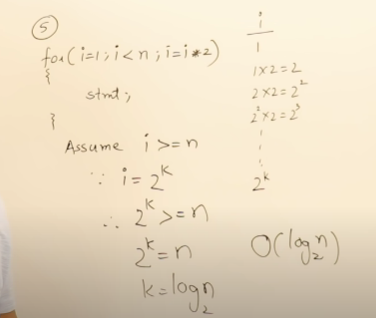 ⑤
for(i=1; i<n; i=i*2)
{
stmt;
}
Assume i >= n
∵ i = 2^k
∴ 2^k >= n
2^k = n
k = log₂n
i
1
1×2=2
2×2=2²
2²×2=2³
2^k
O(log₂n)